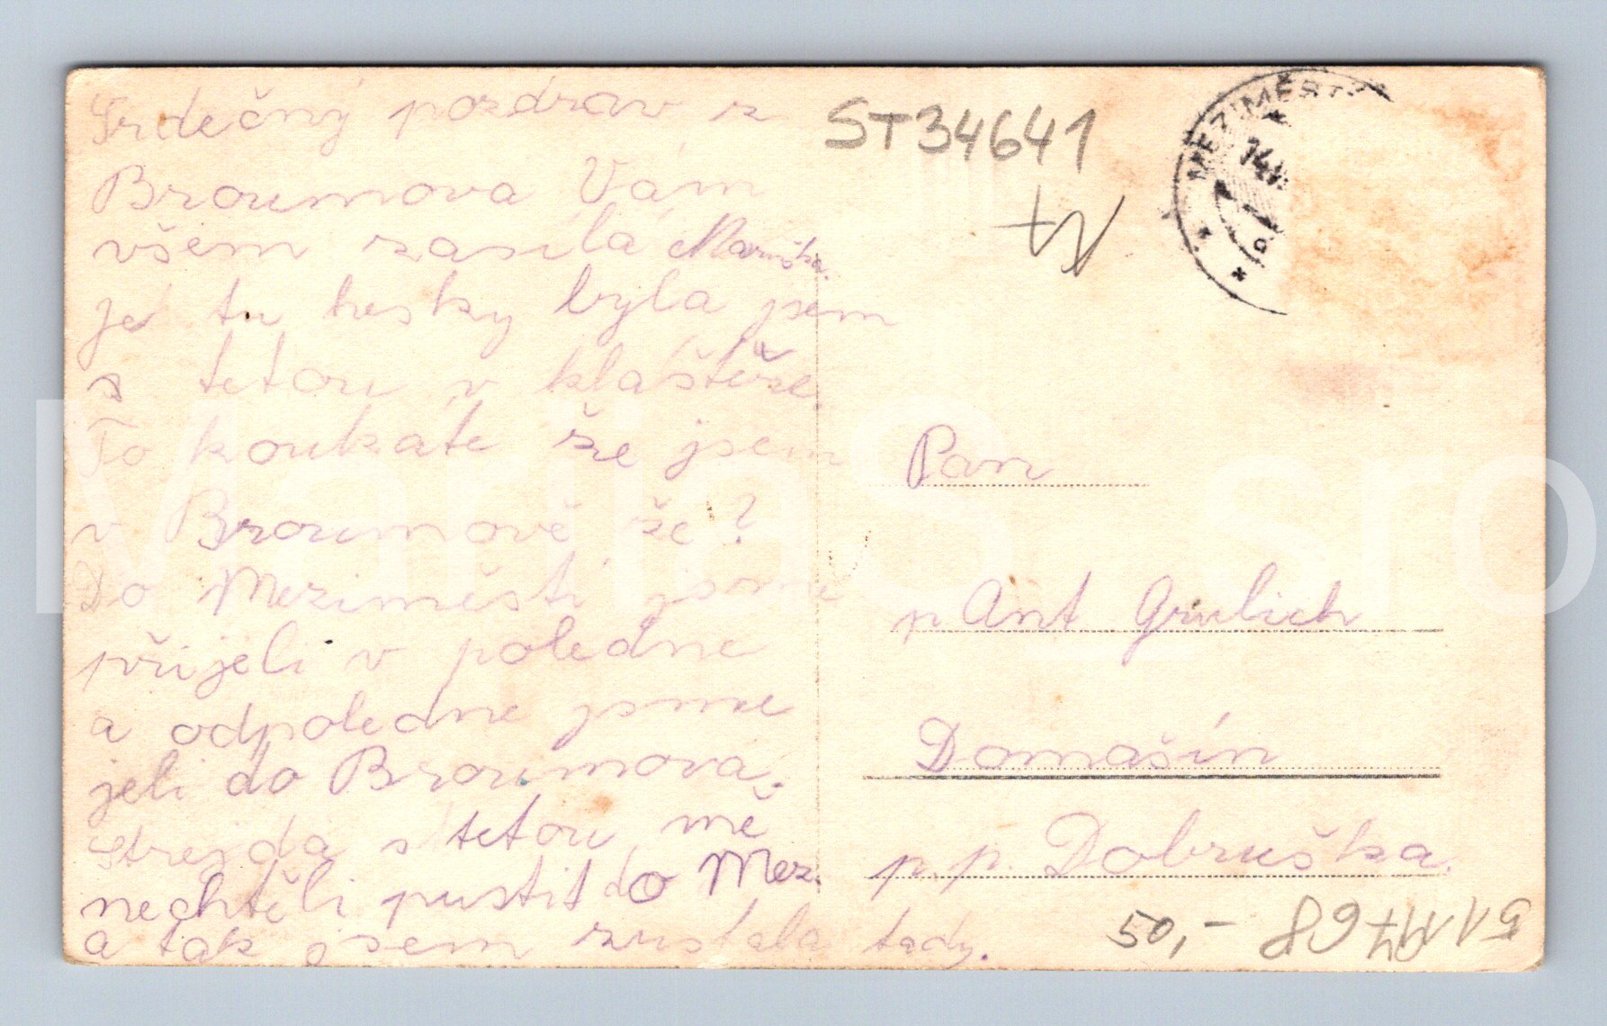 Srdečný pozdrav z
Broumova Vám
všem zasílá Maruška.
je tu hesky byla jsem
s tetou v klaštěře.
To koukáte že jsem
v Broumově že?
Do Meziměstí jsme
přijeli v poledne
a odpoledne jsme
jeli do Broumova.
Strejda s tetou mě
nechtěli pustit do Mez.
a tak jsem zustala tady.
ST34641
MEZIMĚSTÍ
14
Pan
p Ant Grulich
Domašín
p.p. Dobruška.
50,-
MartaS_sro